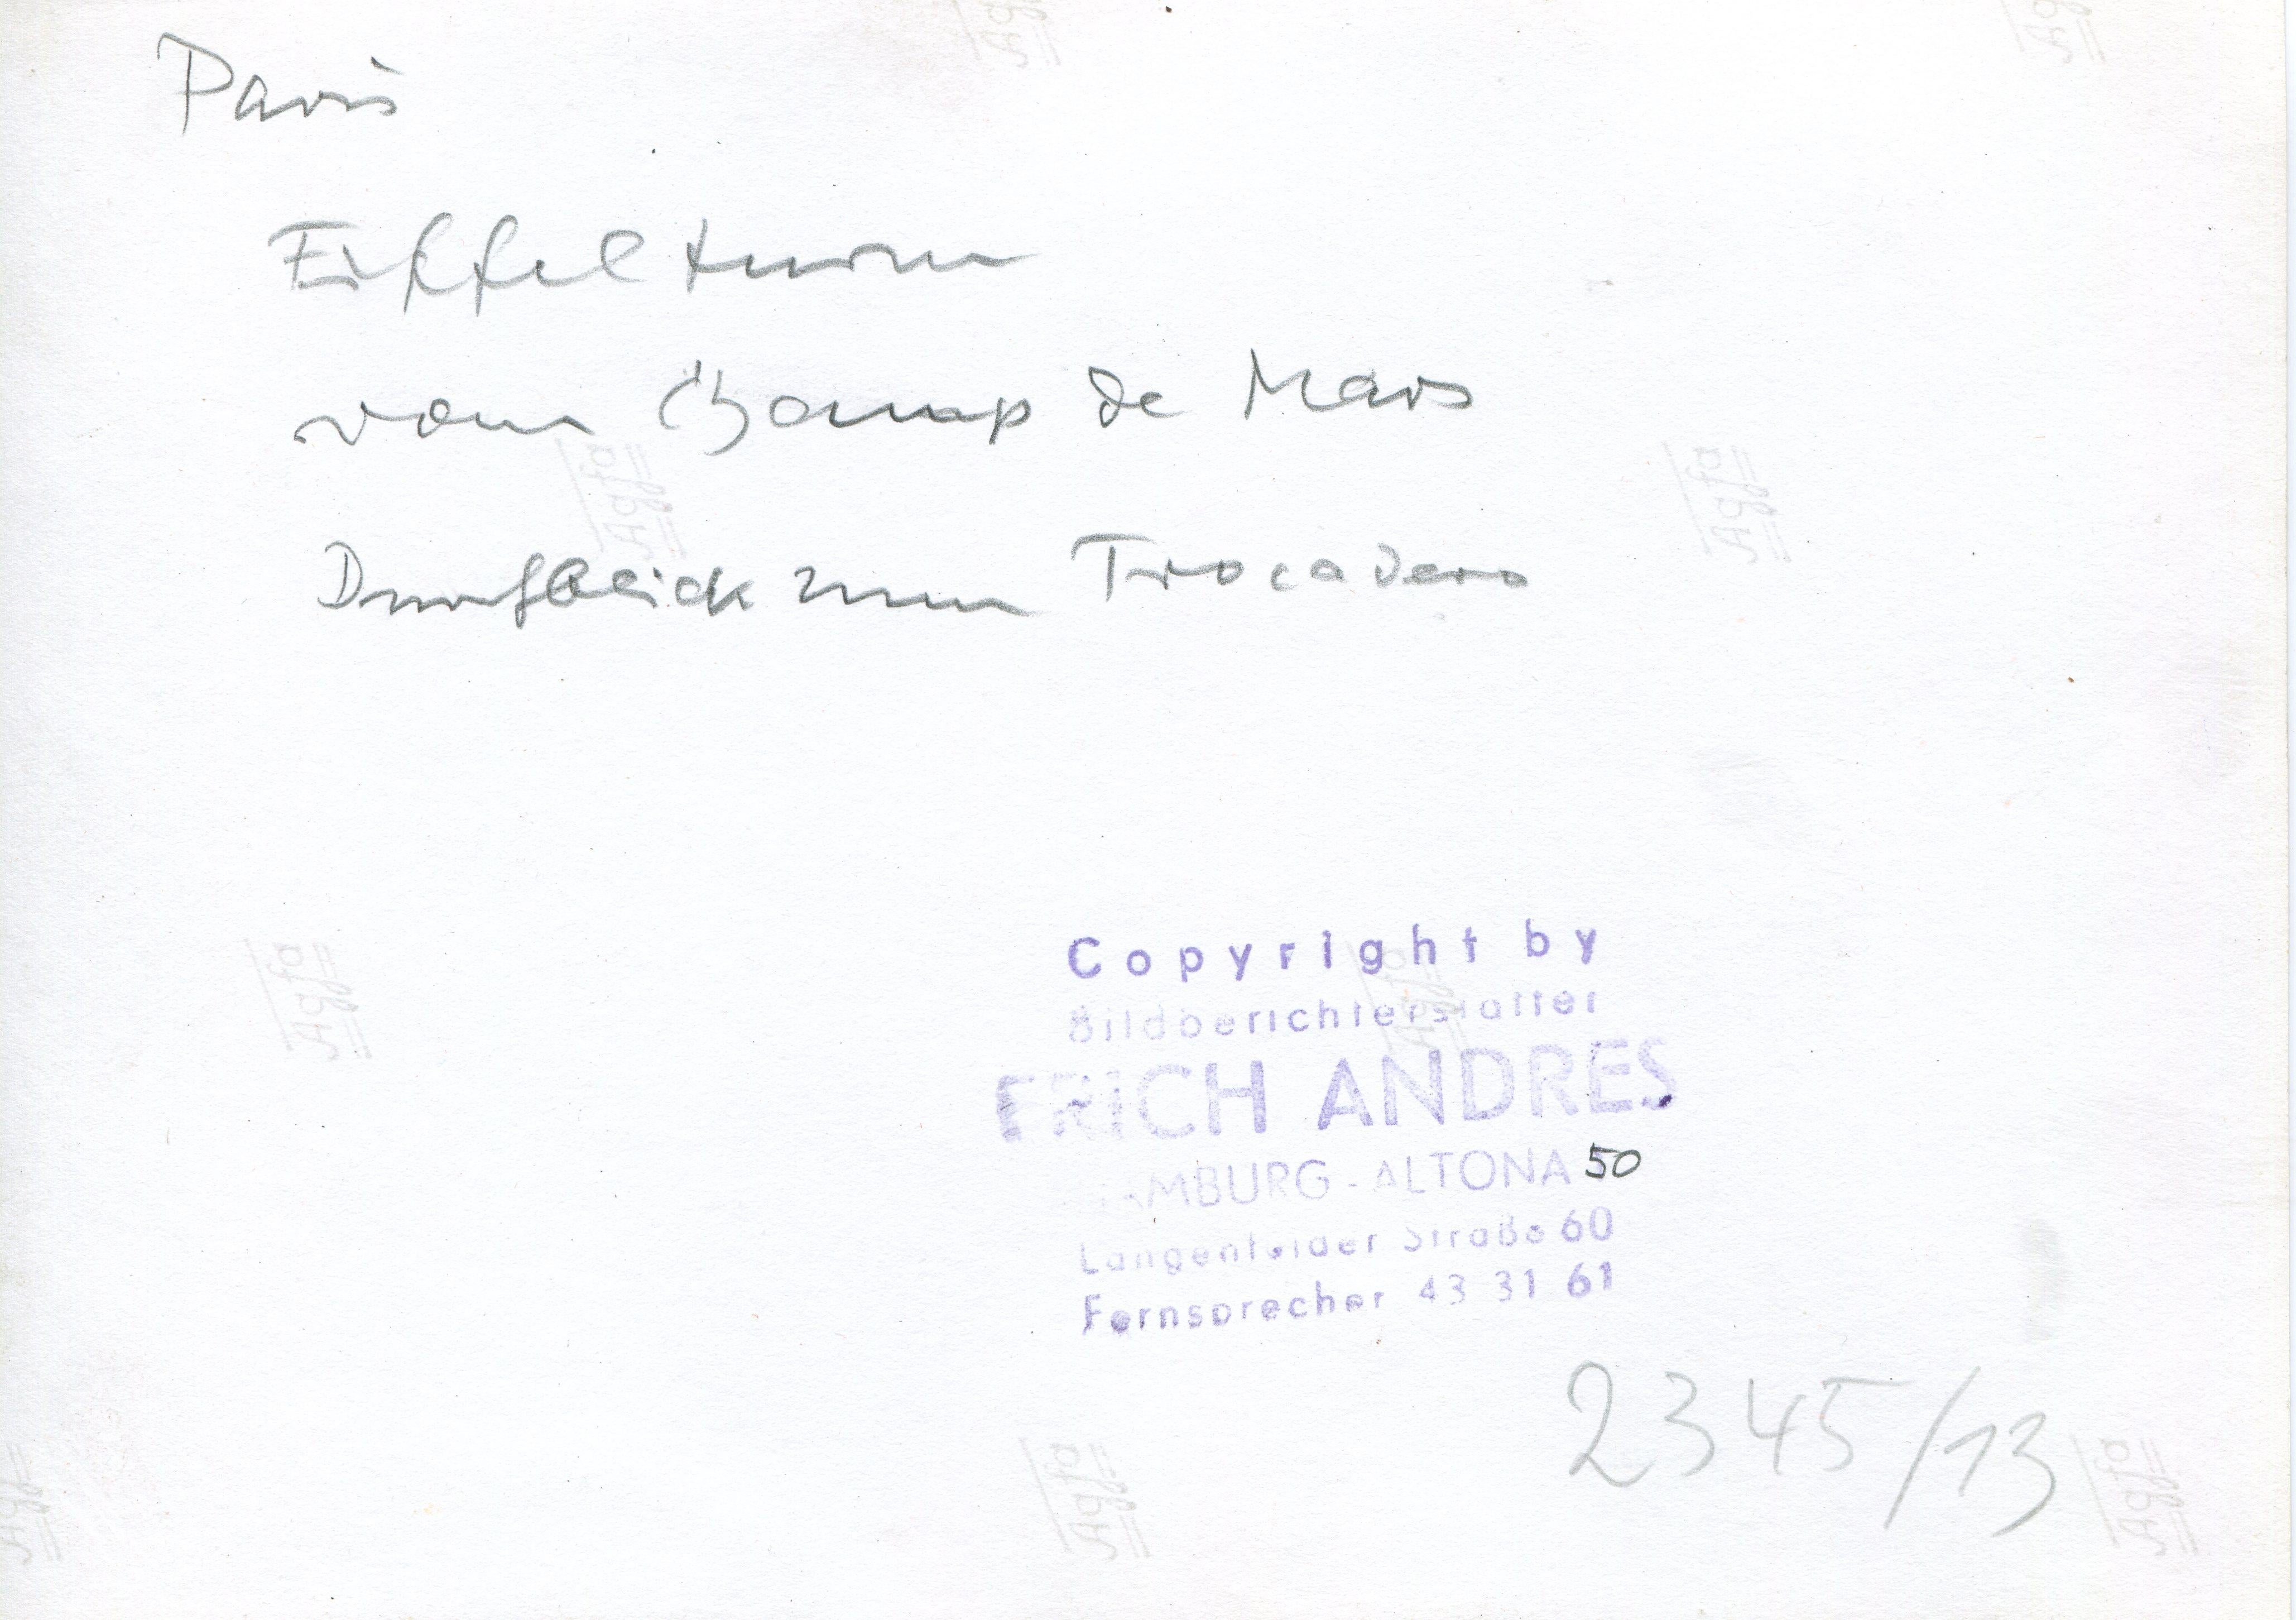 Paris
Eiffelturm
vom Champ de Mars
Durchblick zum Trocadero
Copyright by
Bildberichterstatter
ERICH ANDRES
HAMBURG-ALTONA 50
Langenfelder Straße 60
Fernsprecher 43 31 61
2345/13
Agfa
Agfa
Agfa
Agfa
Agfa
Agfa
Agfa
Agfa
Agfa